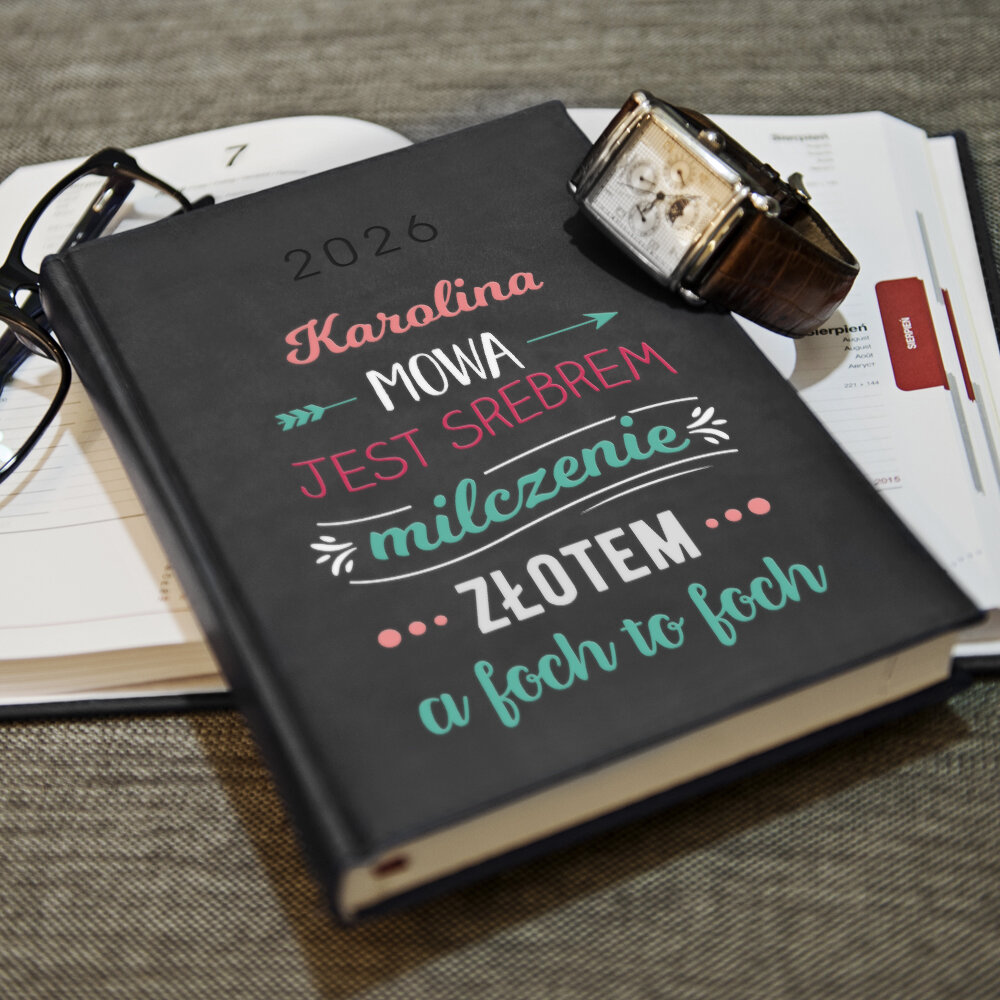 7
2026
Karolina
MOWA
JEST SREBREM
milczenie
ZŁOTEM
a foch to foch
Sierpień
August
August
Août
Август
221 + 144
SIERPIEŃ
2015